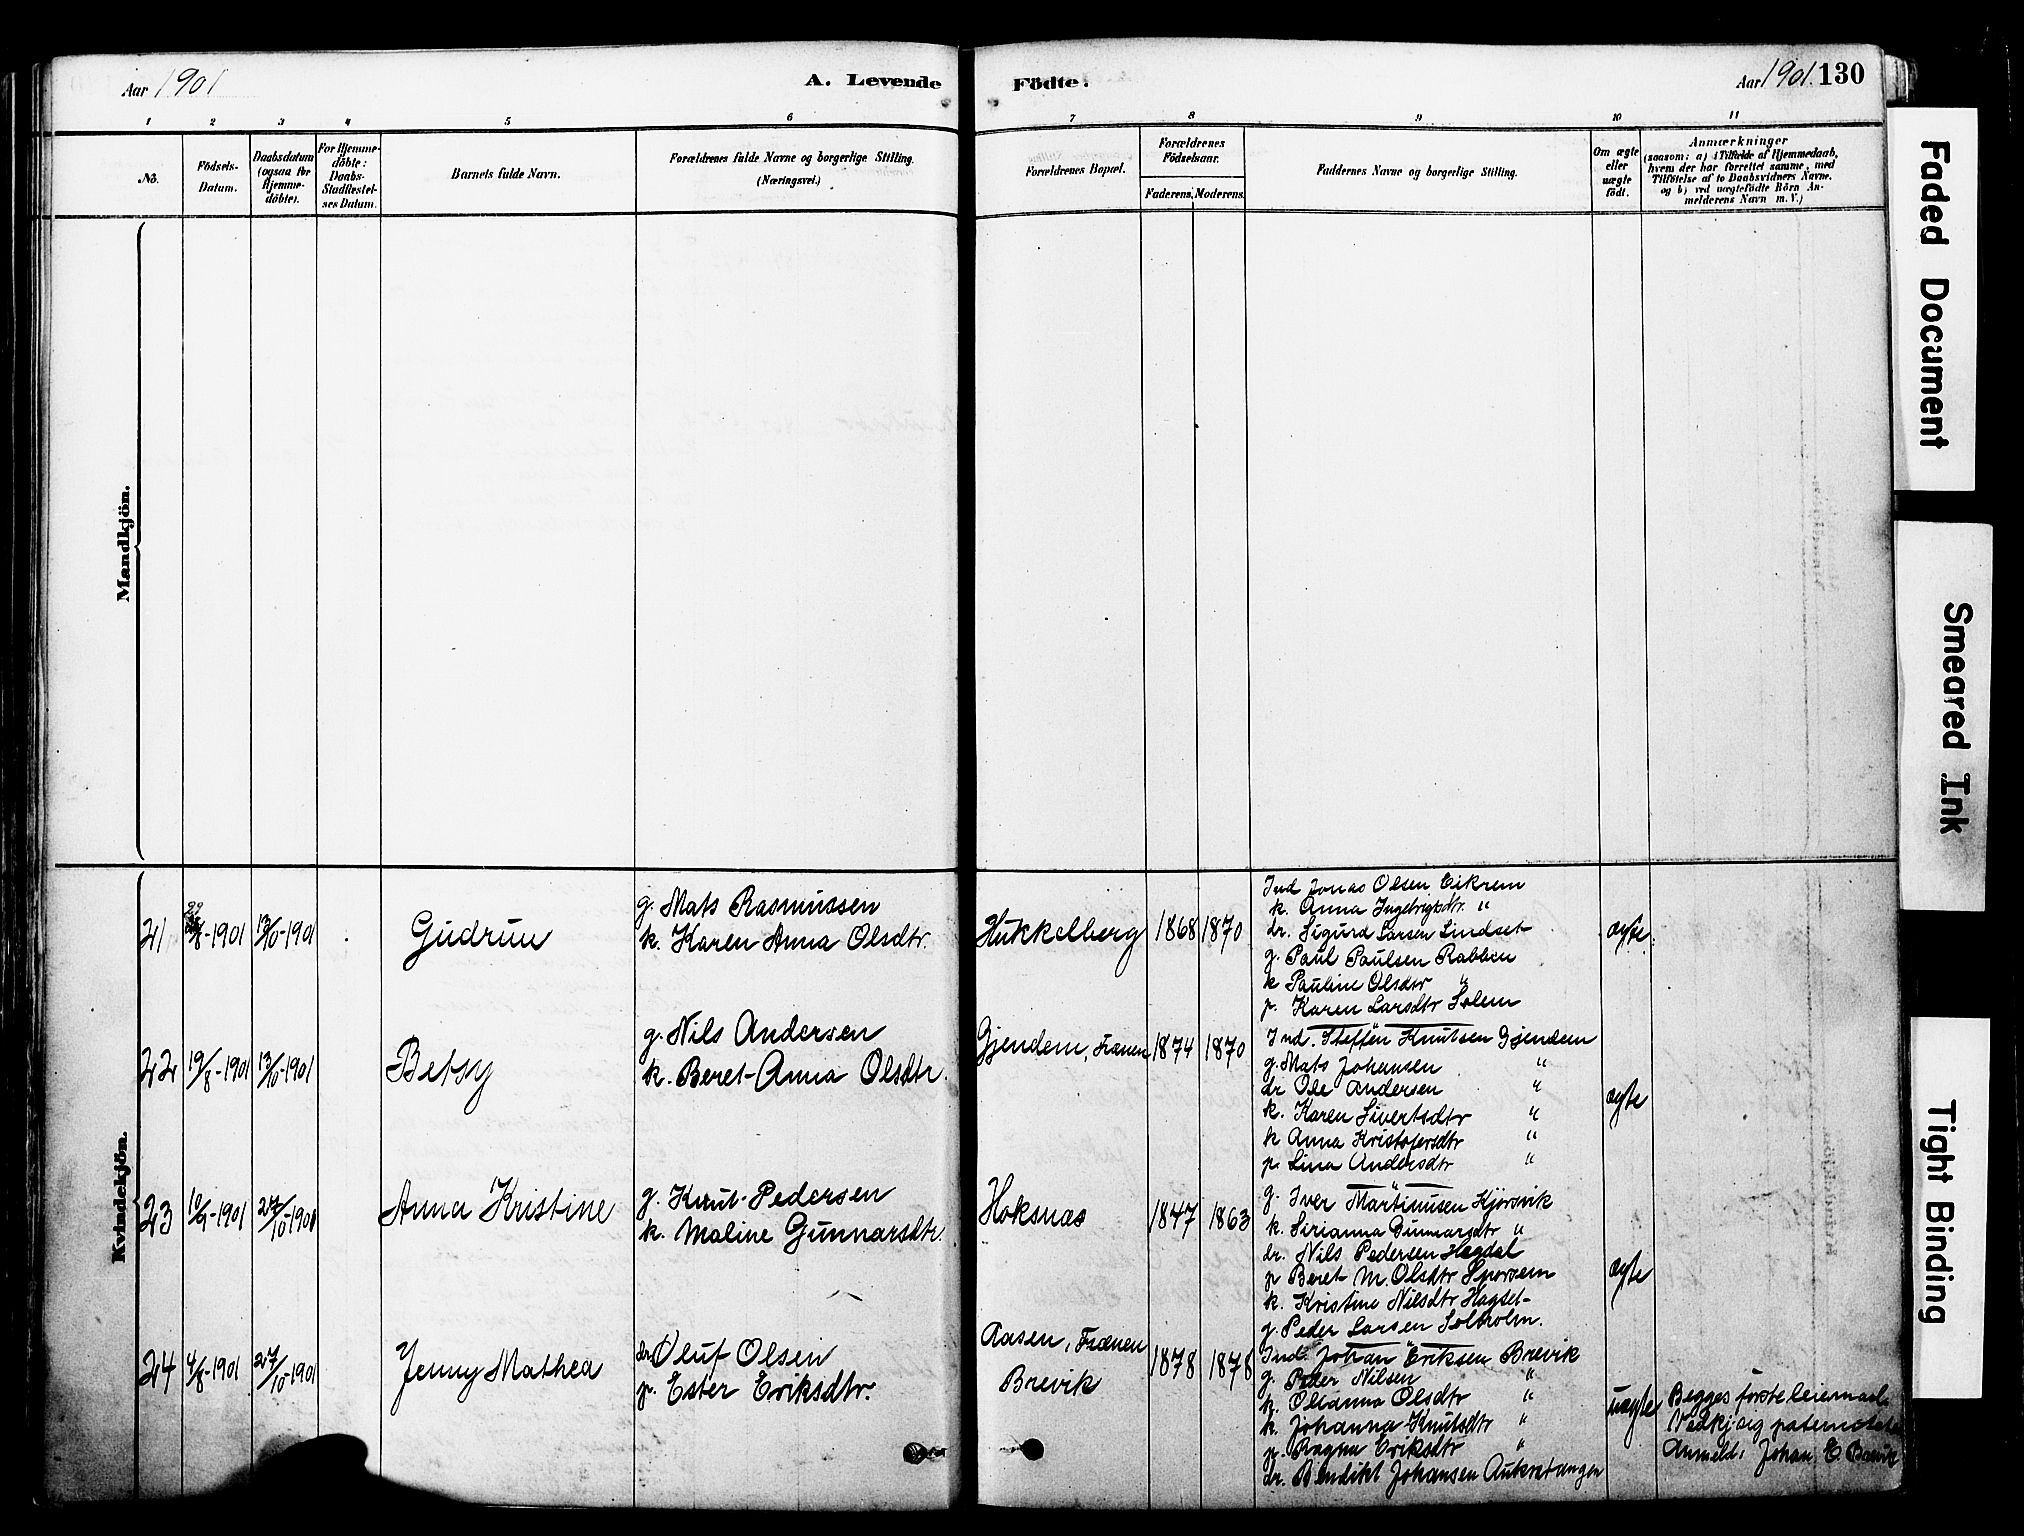 Aar 1901
A. Levende
Födte.
Aar 1901. 130
1 2 3 4 5 6 7 8 9 10 11
No.
Födsels-
Datum.
Daabsdatum
(ogsaa for
Hjemme-
döbte).
For Hjemme-
döbte:
Daabs-
Stadfæstel-
ses Datum.
Barnets fulde Navn.
Forældrenes fulde Navne og borgerlige Stilling.
(Næringsvei.)
Forældrenes Bopæl.
Forældrenes
Födselsaar.
Faderens. Moderens.
Faddernes Navne og borgerlige Stilling.
Om ægte
eller
uægte
födt.
Anmærkninger
(saasom: a) i Tilfælde af Hjemmedaab,
hvem der har forrettet samme, med
Tilföielse af to Daabsvidners Navne,
og b) ved uægtefödte Börn An-
melderens Navn m. V.)
Mandkjön.
Kvindekjön.
21 /8-1901 13/10-1901 Gudrun
g. Mats Rasmussen
k. Karen Anna Olsdtr.
Hukkelberg 1868 1870
Ind Jonas Olsen Eikrem
k. Anna Ingebrigtsdtr. "
dr. Sigurd Larsen Lindset
g. Paul Paulsen Rabben
k Pauline Olsdtr "
p. Karen Larsdtr Solem
ægte.
22 19/8-1901 13/10-1901 Betsy
g. Nils Andersen
k. Beret-Anna Olsdtr.
Gjendem, Frænen 1874 1870
Ind. Steffen Knutsen Gjendem
g. Mats Johansen "
dr Ole Andersen "
k. Karen Sivertsdtr "
k Anna Kristofersdtr "
p. Lina Andersdtr "
ægte
23 10/9-1901 27/10-1901 Anna Kristine
g. Knut Pedersen
k. Maline Gunnarsdtr.
Hoksnas 1847 1863
g. Iver Martinusen Kjörsvik
k. Sirianna Gunnarsdtr "
dr. Nils Pedersen Hagdal
p Beret M. Olsdtr Sporsem
k. Kristine Nilsdtr Hagset
g. Peder Larsen Solholm.
ægte
24 4/8-1901 27/10-1901 Jenny Mathea
dr Oluf Olsen
p. Ester Eriksdtr.
Aasen, Frænen
Brevik
1878 1878
Ind. Johan Eriksen Brevik
g. Peder Nilsen "
k. Olianna Olsdtr "
k. Johanna Knutsdtr "
p. Ragna Eriksdtr "
dr. Bendikt Johansen Aukratangen
uægte
Begges förste leiermaal.
Vedkj. sig paterniteten
Anmeld: Johan E. Brevik
Faded Document
Smeared Ink
Tight Binding